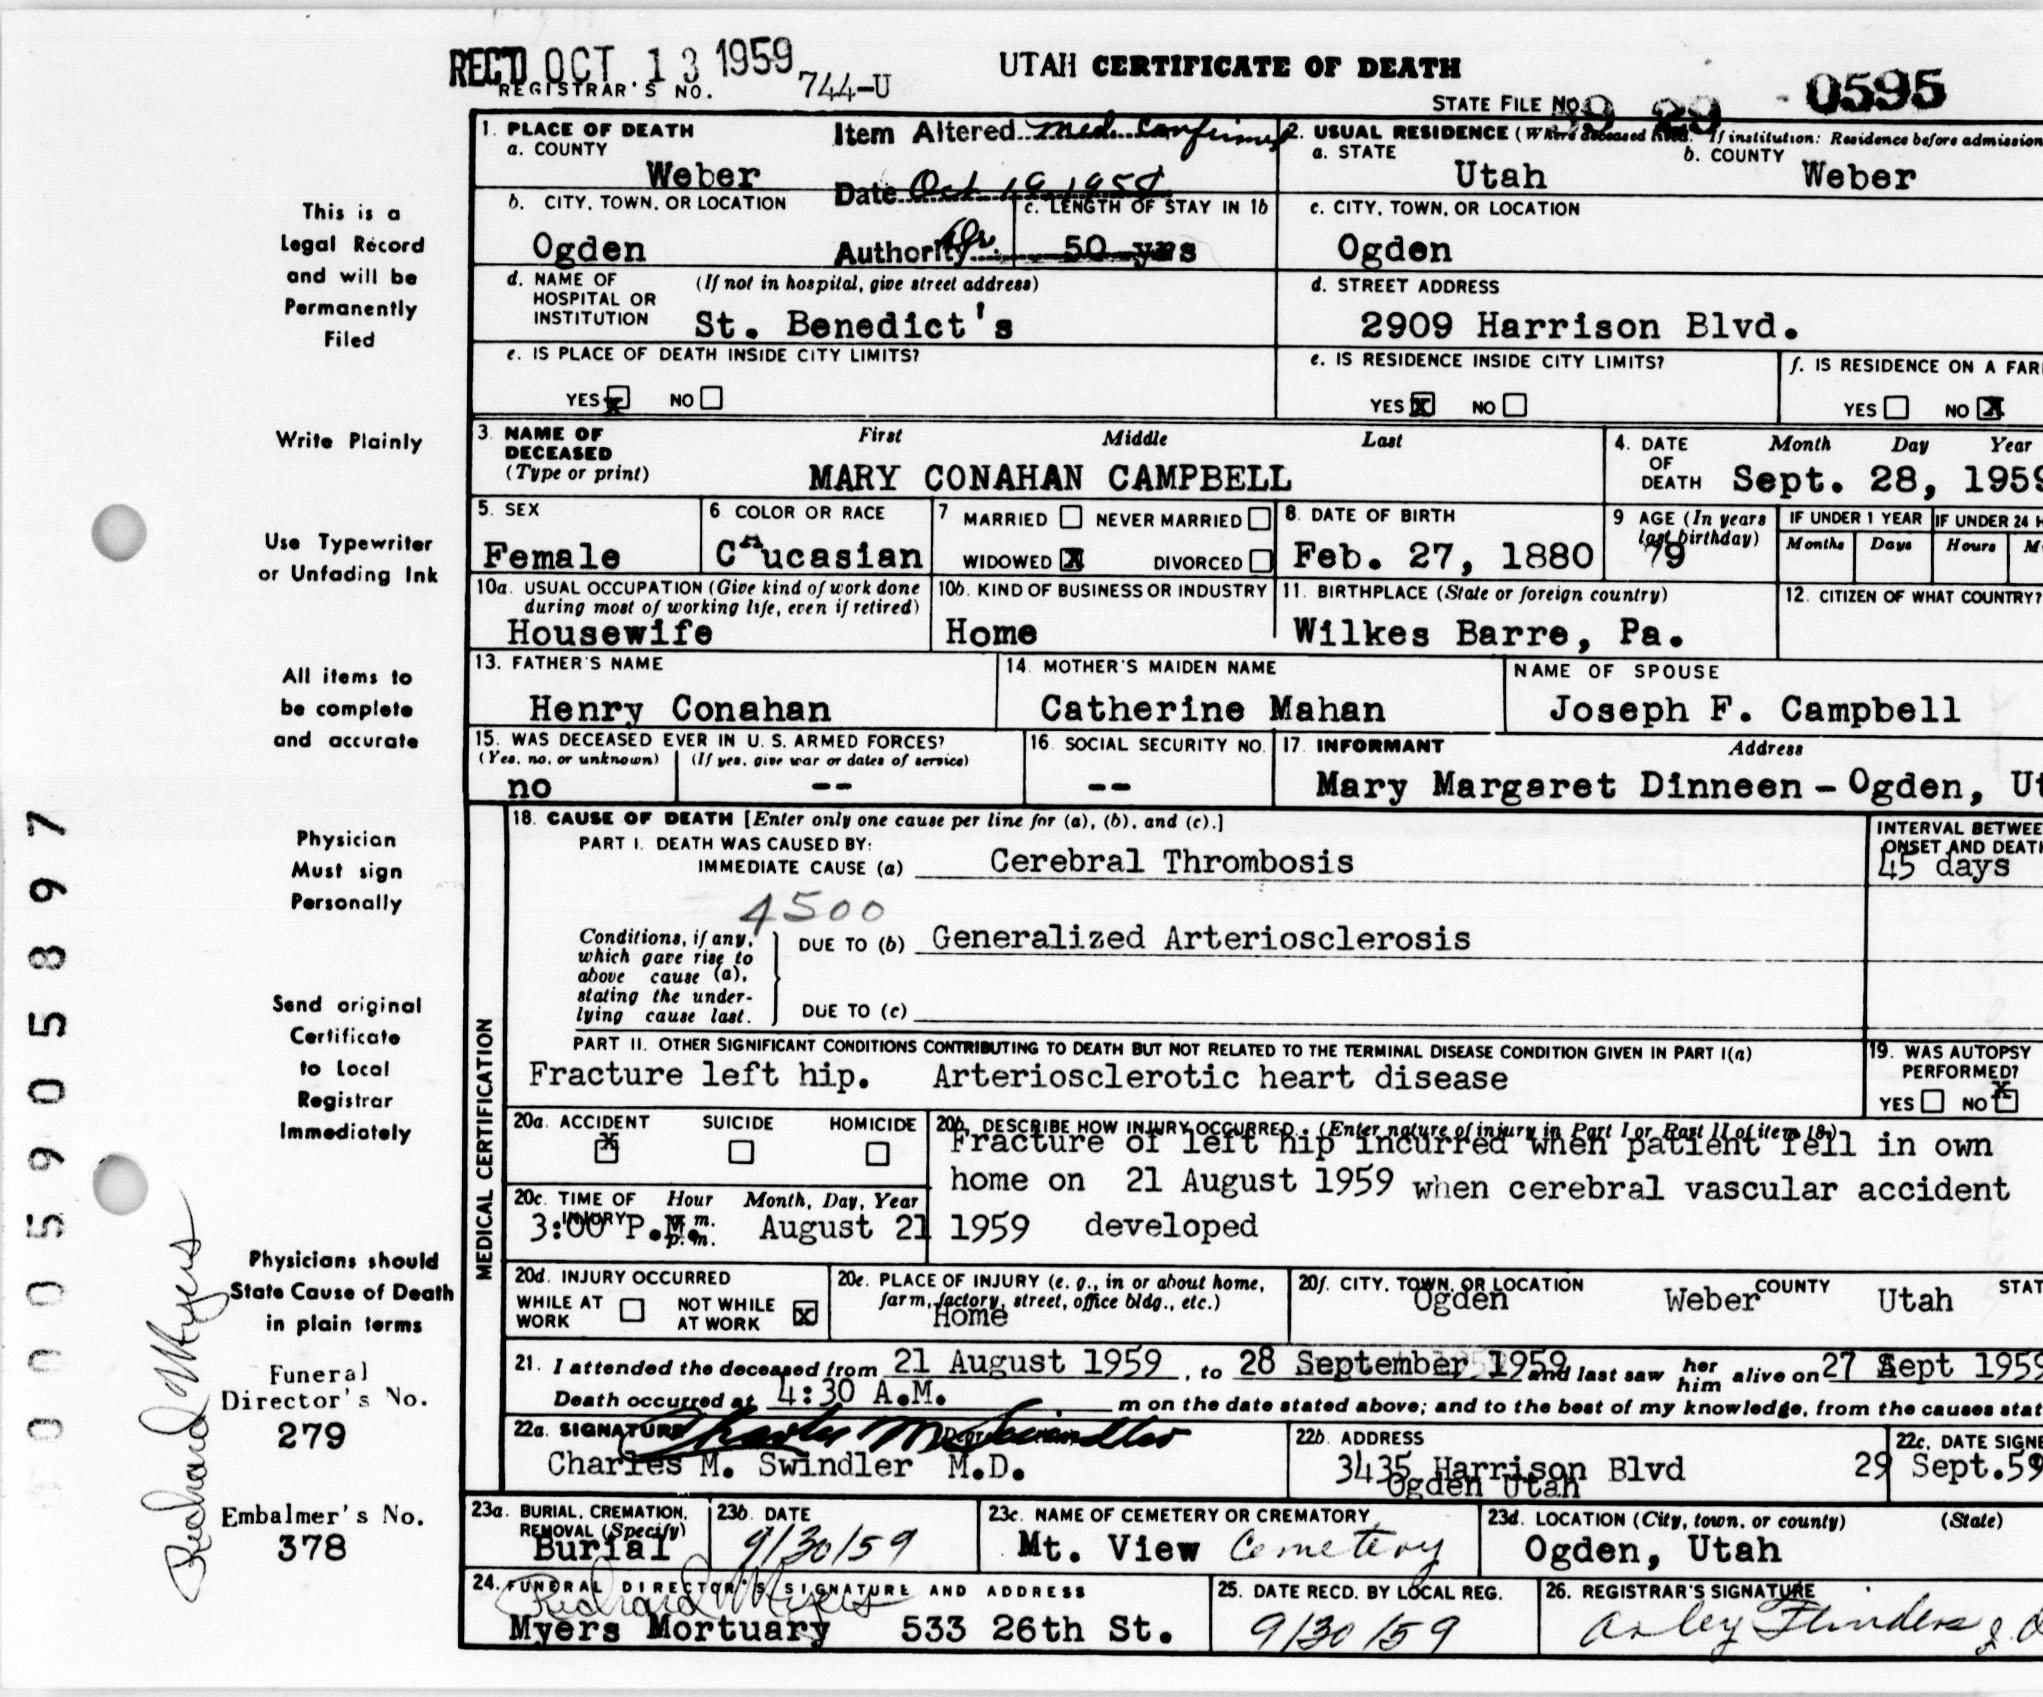 REC'D OCT 13 1959
REGISTRAR'S NO. 744-U
UTAH CERTIFICATE OF DEATH
STATE FILE NO. 59 29 - 0595
1. PLACE OF DEATH
a. COUNTY
Weber
Item Altered Med. Confirmed
Date Oct 19 1959
Authority Dr.
2. USUAL RESIDENCE (Where deceased lived. If institution: Residence before admission
a. STATE
Utah
b. COUNTY
Weber
b. CITY, TOWN, OR LOCATION
Ogden
c. LENGTH OF STAY IN 1b
50 yrs
c. CITY, TOWN, OR LOCATION
Ogden
d. NAME OF HOSPITAL OR INSTITUTION
(If not in hospital, give street address)
St. Benedict's
d. STREET ADDRESS
2909 Harrison Blvd.
e. IS PLACE OF DEATH INSIDE CITY LIMITS?
YES X NO
e. IS RESIDENCE INSIDE CITY LIMITS?
YES X NO
f. IS RESIDENCE ON A FAR
YES NO X
3. NAME OF DECEASED
(Type or print)
First Middle Last
MARY CONAHAN CAMPBELL
4. DATE OF DEATH
Month Day Year
Sept. 28, 1959
5. SEX
Female
6. COLOR OR RACE
CAucasian
7 MARRIED NEVER MARRIED
WIDOWED X DIVORCED
8. DATE OF BIRTH
Feb. 27, 1880
9 AGE (In years last birthday)
79
IF UNDER 1 YEAR
Months Days
IF UNDER 24 H
Hours M
10a. USUAL OCCUPATION (Give kind of work done during most of working life, even if retired)
Housewife
10b. KIND OF BUSINESS OR INDUSTRY
Home
11. BIRTHPLACE (State or foreign country)
Wilkes Barre, Pa.
12. CITIZEN OF WHAT COUNTRY?
13. FATHER'S NAME
Henry Conahan
14. MOTHER'S MAIDEN NAME
Catherine Mahan
NAME OF SPOUSE
Joseph F. Campbell
15. WAS DECEASED EVER IN U. S. ARMED FORCES?
(Yes, no, or unknown) (If yes, give war or dates of service)
no --
16. SOCIAL SECURITY NO.
--
17. INFORMANT Address
Mary Margaret Dinneen - Ogden, Ut
MEDICAL CERTIFICATION
18. CAUSE OF DEATH [Enter only one cause per line for (a), (b), and (c).]
PART I. DEATH WAS CAUSED BY:
IMMEDIATE CAUSE (a) Cerebral Thrombosis
INTERVAL BETWEE
ONSET AND DEATH
45 days
4500
Conditions, if any, which gave rise to above cause (a), stating the underlying cause last.
DUE TO (b) Generalized Arteriosclerosis
DUE TO (c)
PART II. OTHER SIGNIFICANT CONDITIONS CONTRIBUTING TO DEATH BUT NOT RELATED TO THE TERMINAL DISEASE CONDITION GIVEN IN PART I(a)
Fracture left hip. Arteriosclerotic heart disease
19. WAS AUTOPSY PERFORMED?
YES NO X
20a. ACCIDENT SUICIDE HOMICIDE
X
20b. DESCRIBE HOW INJURY OCCURRED. (Enter nature of injury in Part I or Part II of item 18.)
Fracture of left hip incurred when patient fell in own
home on 21 August 1959 when cerebral vascular accident
developed
20c. TIME OF INJURY Hour Month, Day, Year
a. m.
p. m.
3:00 P.M. August 21 1959
20d. INJURY OCCURRED
WHILE AT WORK NOT WHILE AT WORK X
20e. PLACE OF INJURY (e. g., in or about home, farm, factory, street, office bldg., etc.)
Home
20f. CITY, TOWN, OR LOCATION COUNTY STAT
Ogden Weber Utah
21. I attended the deceased from 21 August 1959, to 28 September 1959 and last saw her him alive on 27 Sept 1959
Death occurred at 4:30 A.M. m on the date stated above; and to the best of my knowledge, from the causes stat
22a. SIGNATURE Charles M Swindler
Charles M. Swindler M.D.
22b. ADDRESS
3435 Harrison Blvd
Ogden Utah
22c. DATE SIGNE
29 Sept.59
23a. BURIAL, CREMATION, REMOVAL (Specify)
Burial
23b. DATE
9/30/59
23c. NAME OF CEMETERY OR CREMATORY
Mt. View Cemetery
23d. LOCATION (City, town, or county) (State)
Ogden, Utah
24. FUNERAL DIRECTOR'S SIGNATURE AND ADDRESS
Richard Myers
Myers Mortuary 533 26th St.
25. DATE RECD. BY LOCAL REG.
9/30/59
26. REGISTRAR'S SIGNATURE
Flinders
This is a
Legal Record
and will be
Permanently
Filed
Write Plainly
Use Typewriter
or Unfading Ink
All items to
be complete
and accurate
Physician
Must sign
Personally
Send original
Certificate
to Local
Registrar
Immediately
Physicians should
State Cause of Death
in plain terms
Funeral
Director's No.
279
Embalmer's No.
378
Richard Myers
0005905897